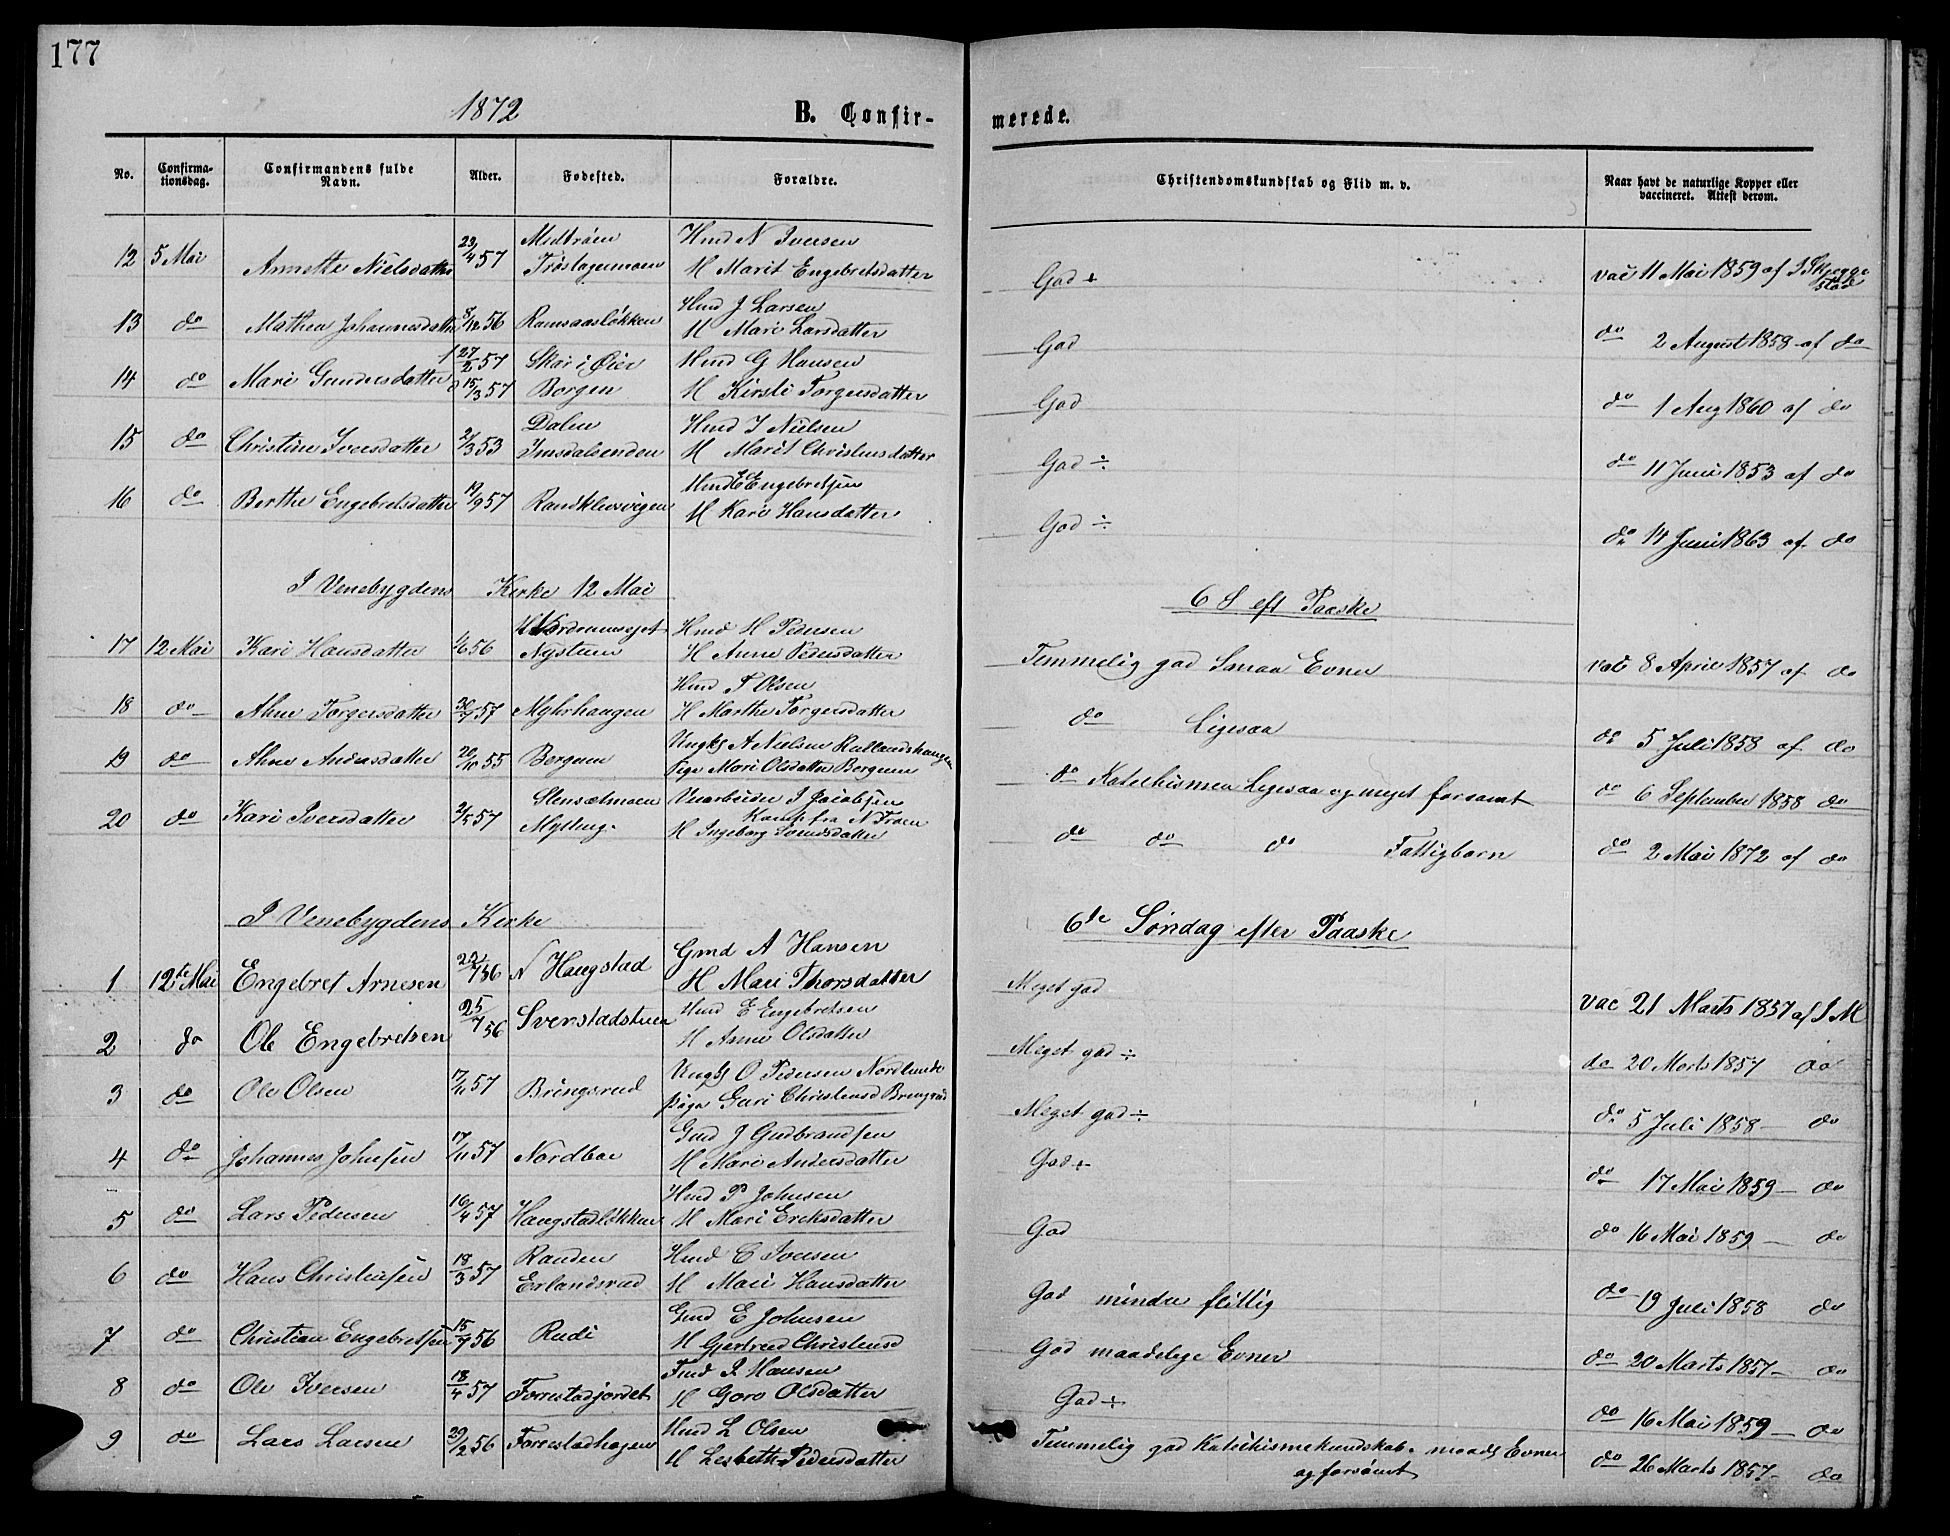 177
1872 B. Confir-merede.
No. Confirma-tionsdag. Confirmandens fulde Navn. Alder. Fødested. Forældre. Christendomskundskab og Flid m. v. Naar havt de naturlige Kopper eller vaccineret. Attest derom.
12 5 Mai Annette Nielsdatter 23/4 57 Hmd N Iversen H Marit Engebretsdatter God ÷ vac 11 Mai 1859 af
13 do Mathea Johannesdatter 8/12 56 Ramsaasløkken Hmd J Larsen H Mari Larsdatter God do 2 August 1858 af do
14 do Mari Gundersdatter 27/2 57 15/3 57 Skar i Øier Borgen Hmd G Hansen H Kirsti Torgersdatter God do 1 Aug 1860 af do
15 do Christine Iversdatter 2/3 53 Dalen Imsdalsenden Hmd I Nielsen H Marit Christensdatter God ÷ do 11 Juni 1853 af do
16 do Berthe Engebretsdatter 19/9 57 Randklevsvigen Hmd E Engebretsen H Kari Hansdatter God ÷ do 14 Juni 1863 af do
I Venebygdens Kirke 12 Mai 6 S eft Paaske
17 12 Mai Kari Hansdatter 1/6 56 Nystuen Hmd H Pedersen H Anne Pedersdatter Temmelig god Smaa Evner vac 8 April 1857 af do
18 do Ahne Torgersdatter 30/7 57 Myhrhaugen Hmd T Olsen H Marthe Torgersdatter do Ligesaa do 5 Juli 1858 af do
19 do Ahne Andersdatter 20/10 55 Bergum Ungk A Nielsen Rullandshaugen Pige Mari Olsdatter Bergum do Katechismen Ligesaa og meget forsømt do 6 September 1858 do
20 do Kari Iversdatter 2/5 57 Stensætmoen Mytting I Jacobsen Kamp fra N Froen H Ingeborg do do do Fattigbarn do 2 Mai 1872 af do
I Venebygdens Kirke 6te Søndag efter Paaske
1 12te Mai Engebret Arnesen 22/7 56 N Haugstad Gmd A Hansen H Mari Thorsdatter Meget god vac 21 Marts 1857 af
2 do Ole Engebretsen 25/7 56 Sverstadstuen Hmd E Engebretsen H Anne Olsdatter Meget god ÷ do 20 Marts 1857 do
3 do Ole Olsen 17/11 57 Bringsrud Ungk O Pedersen Nordlunde Pige Guri Christensd Bringsrud Meget god ÷ do 5 Juli 1858 do
4 do Johannes Johnsen 17/11 57 Nordboe Gmd J Gudbrandsen H Mari Andersdatter God ÷ do 17 Mai 1859 do
5 do Lars Pedersen 16/4 57 Haugstadløkken Hmd P Johnsen H Mari Ericksdatter God do 16 Mai 1859 do
6 do Hans Christensen 18/3 57 Randen Erlandsrud Hmd C Iversen H Mari Hansdatter God mindre flittig do 19 Juli 1858 do
7 do Christian Engebretsen 15/7 56 Rudi Gmd E Johnsen H Gjertrud Christensd God maadelige Evner do 20 Marts 1857 do
8 do Ole Iversen 18/4 57 Forrestadjordet Fmd I Hansen H Goro Olsdatter God ÷ do 16 Mai 1859 do
9 do Lars Larsen 29/2 56 Forrestadhagen Hmd L Olsen H Lisbeth Pedersdatter Temmelig god Katechismekundskab. maads Evner og forsømt do 26 Marts 1857 do